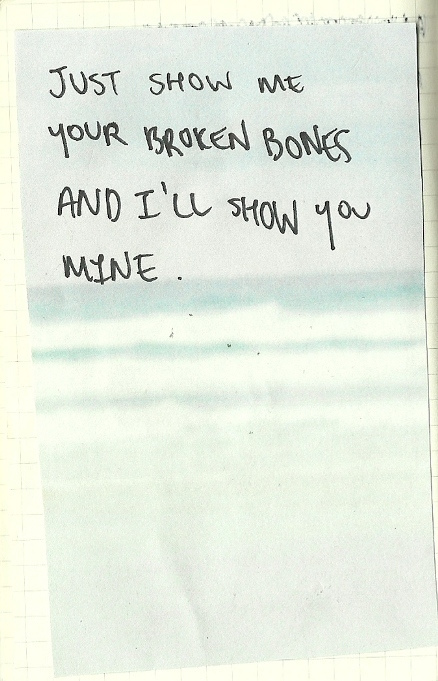 JUST SHOW ME
YOUR BROKEN BONES
AND I'LL SHOW YOU
MINE.